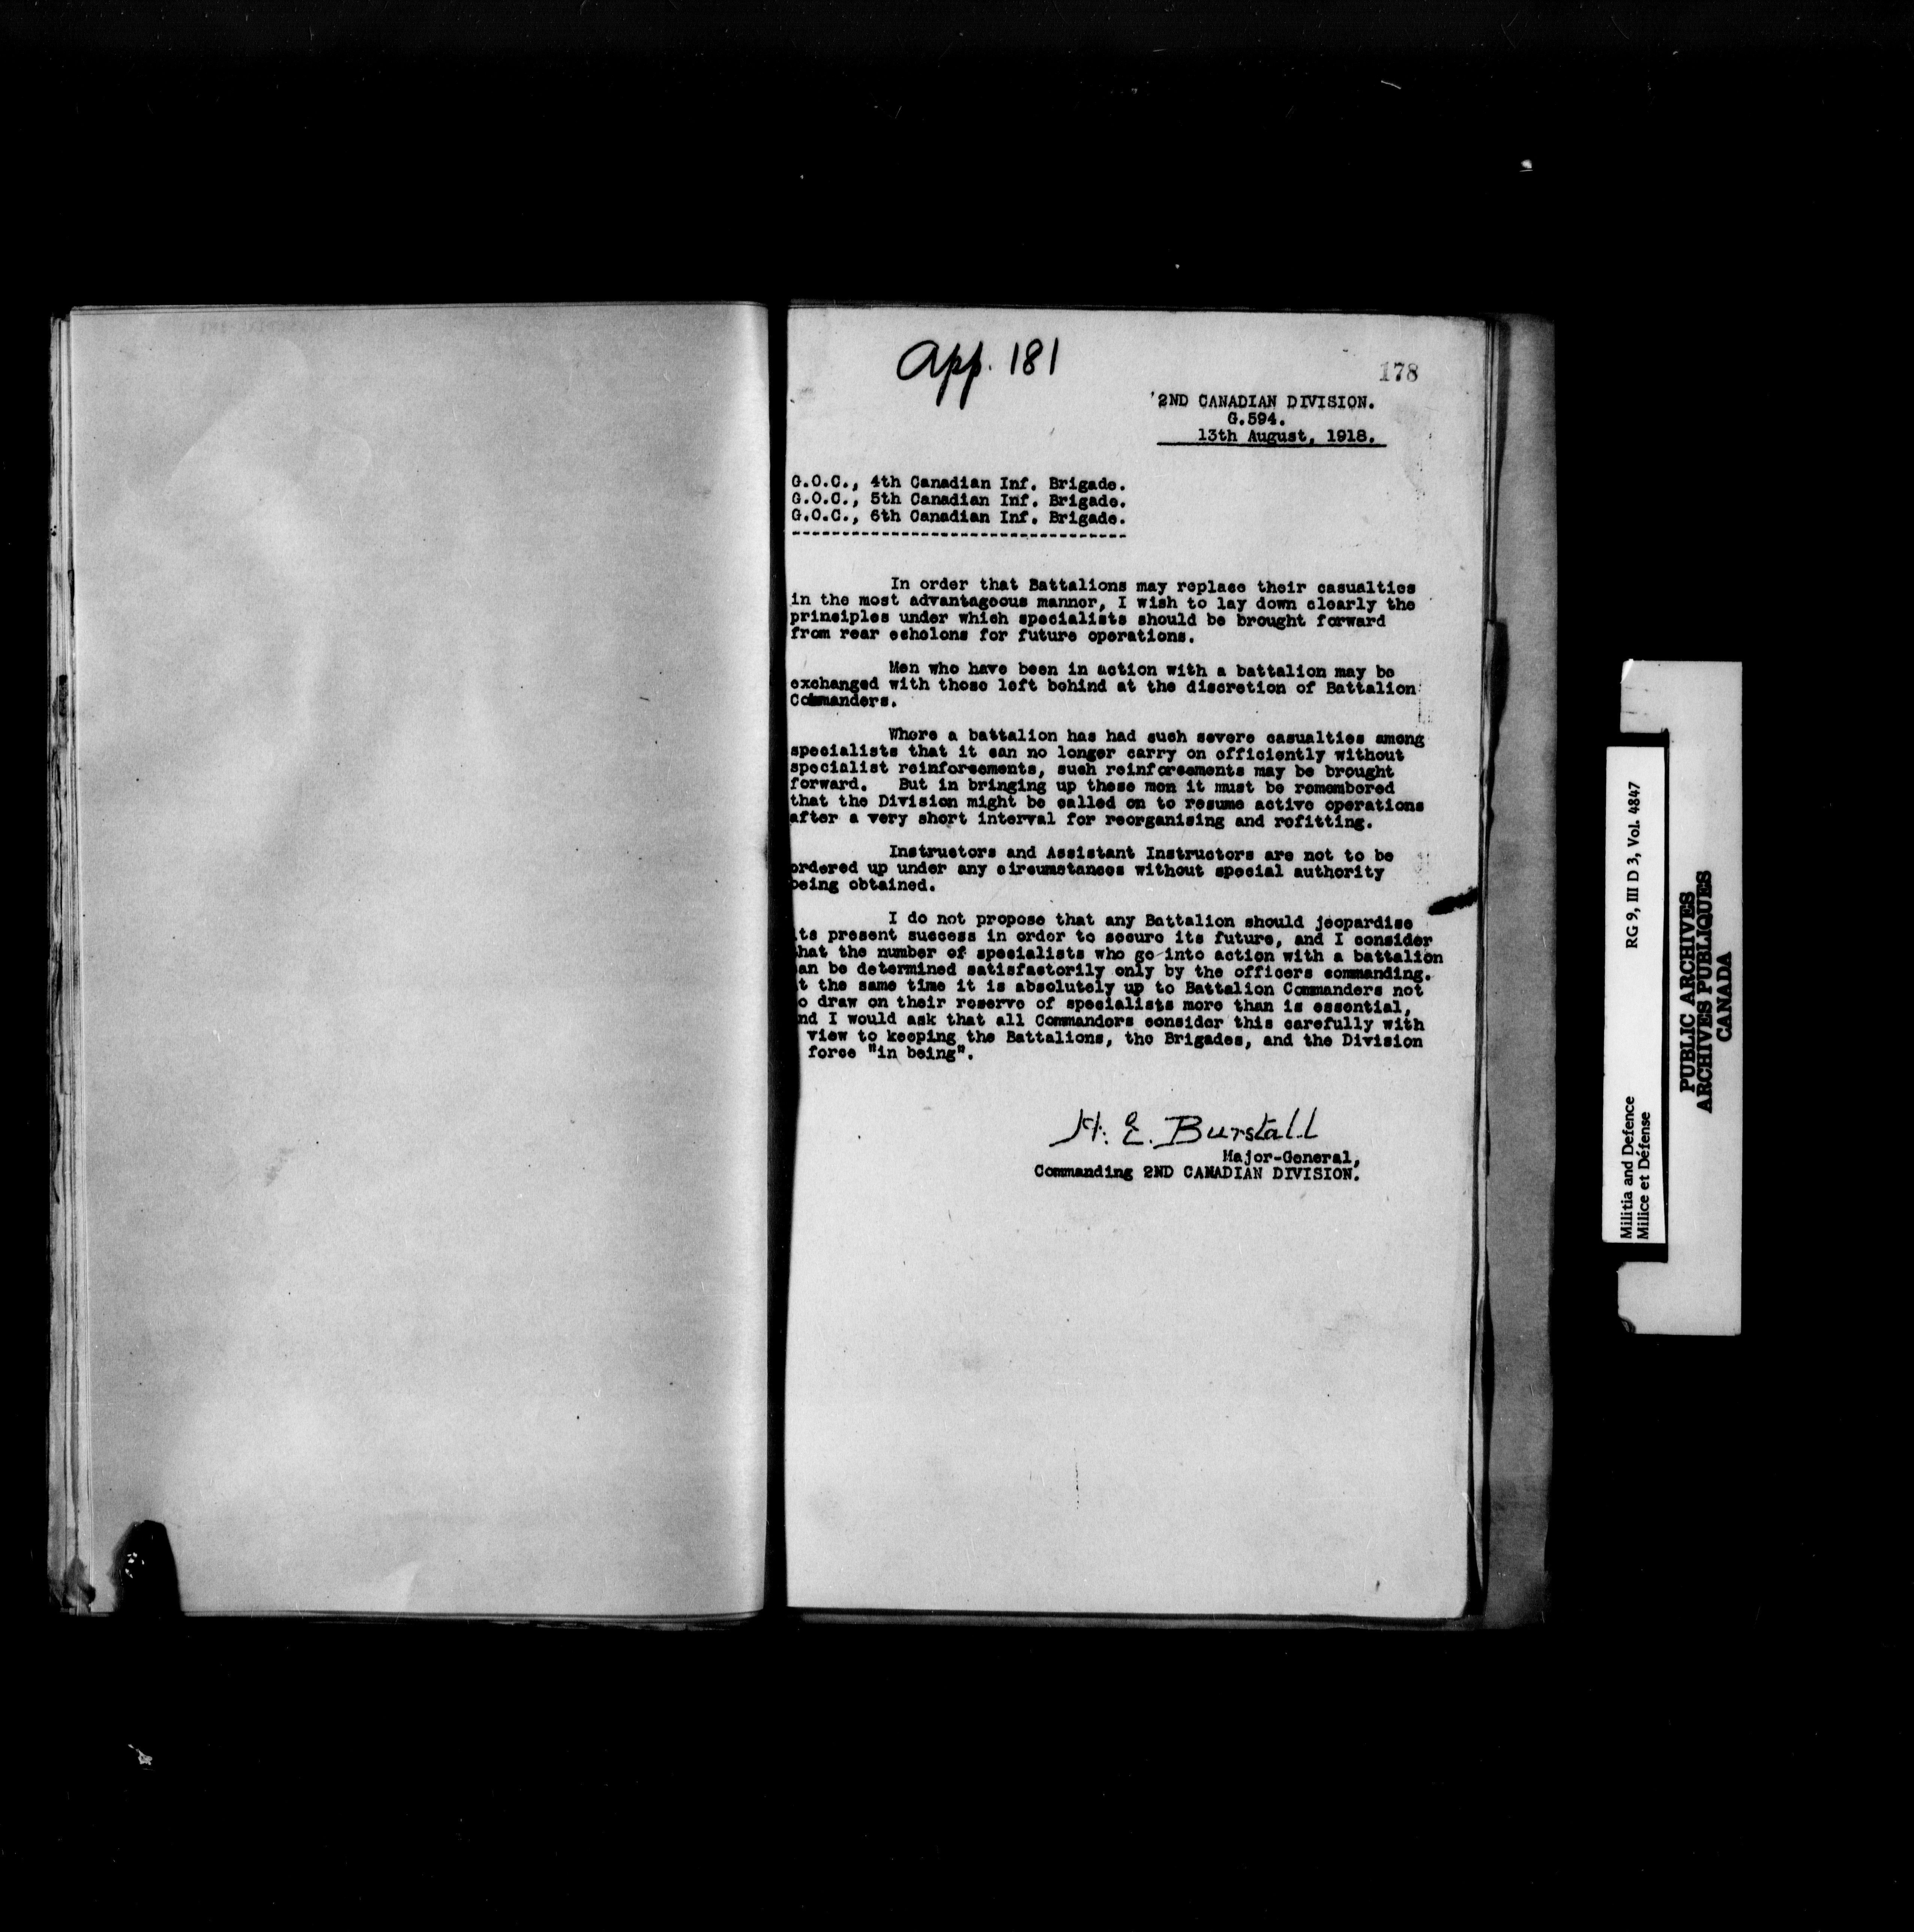 App. 181
178
2ND CANADIAN DIVISION.
G.594.
13th August, 1918.
G.O.C., 4th Canadian Inf. Brigade.
G.O.C., 5th Canadian Inf. Brigade.
G.O.C., 6th Canadian Inf. Brigade.
----------------------------------
In order that Battalions may replace their casualties
in the most advantageous manner, I wish to lay down clearly the
principles under which specialists should be brought forward
from rear echelons for future operations.
Men who have been in action with a battalion may be
exchanged with those left behind at the discretion of Battalion
Commanders.
Where a battalion has had such severe casualties among
specialists that it can no longer carry on efficiently without
specialist reinforcements, such reinforcements may be brought
forward. But in bringing up these men it must be remembered
that the Division might be called on to resume active operations
after a very short interval for reorganising and refitting.
Instructors and Assistant Instructors are not to be
ordered up under any circumstances without special authority
being obtained.
I do not propose that any Battalion should jeopardise
ts present success in order to secure its future, and I consider
hat the number of specialists who go into action with a battalion
an be determined satisfactorily only by the officers commanding.
t the same time it is absolutely up to Battalion Commanders not
o draw on their reserve of specialists more than is essential,
nd I would ask that all Commanders consider this carefully with
view to keeping the Battalions, the Brigades, and the Division
force "in being".
H. E. Burstall
Major-General,
Commanding 2ND CANADIAN DIVISION.
Militia and Defence RG 9, III D 3, Vol. 4847
Milice et Défense
PUBLIC ARCHIVES
ARCHIVES PUBLIQUES
CANADA